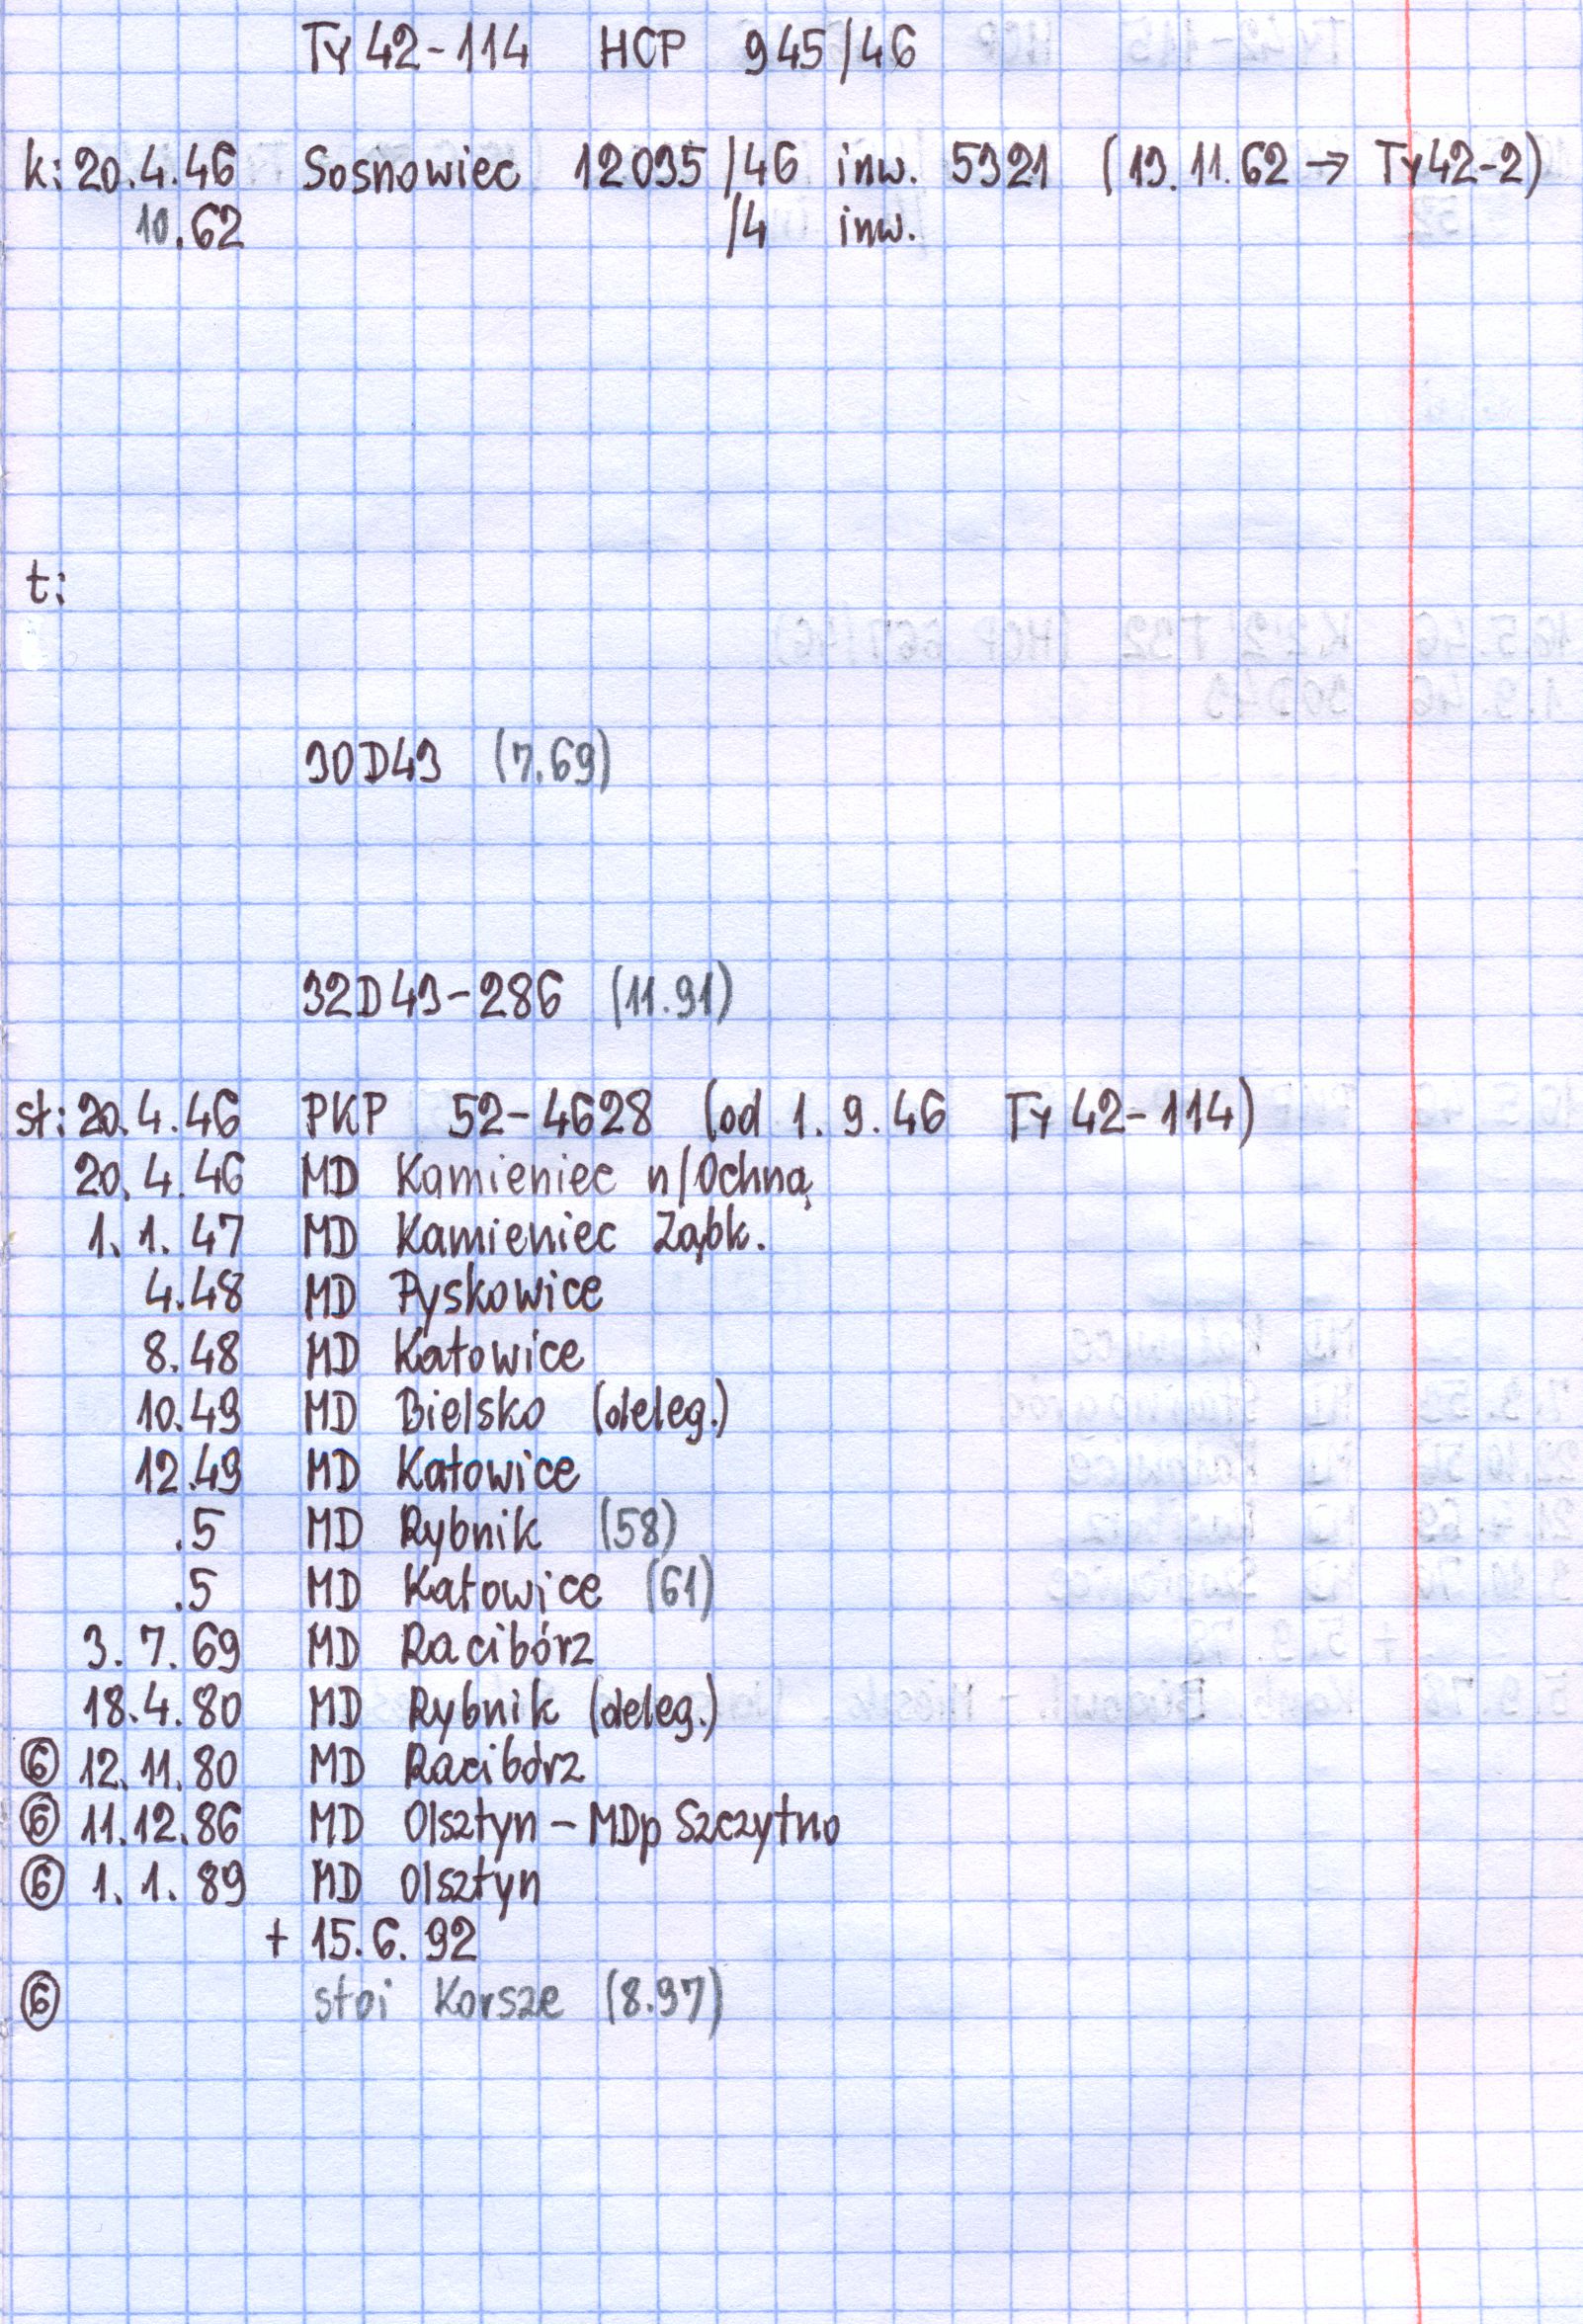 Ty42-114 HCP 945/46
k: 20.4.46 Sosnowiec 12095/46 inw. 5921 (19.11.62 → Ty42-2)
10.62 /4 inw.
t:
30D43 (7.69)
32D43-286 (11.91)
st: 20.4.46 PKP 52-4628 (od 1.9.46 Ty42-114)
20.4.46 MD Kamieniec n/Ochną
1.1.47 MD Kamieniec Ząbk.
4.48 MD Pyskowice
8.48 MD Katowice
10.49 MD Bielsko (deleg.)
12.49 MD Katowice
.5 MD Rybnik (58)
.5 MD Katowice (61)
3.7.69 MD Racibórz
18.4.80 MD Rybnik (deleg.)
⑥ 12.11.80 MD Racibórz
⑥ 11.12.86 MD Olsztyn - MDp Szczytno
⑥ 1.1.89 MD Olsztyn
+ 15.6.92
⑥ stoi Korsze (8.97)